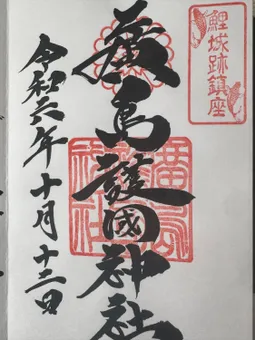 鯉城跡鎮座
廣島護國神社
令和六年十月十二日